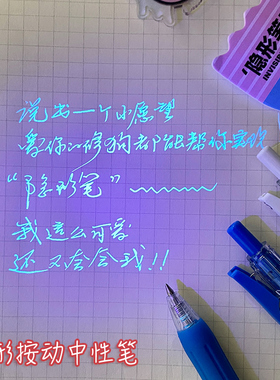 隐形笔
INVISIB
说出一个小愿望
爱你的修狗都能帮你实现
“隐形笔”
我这么可爱
还不夸夸我!!
形按动中性笔